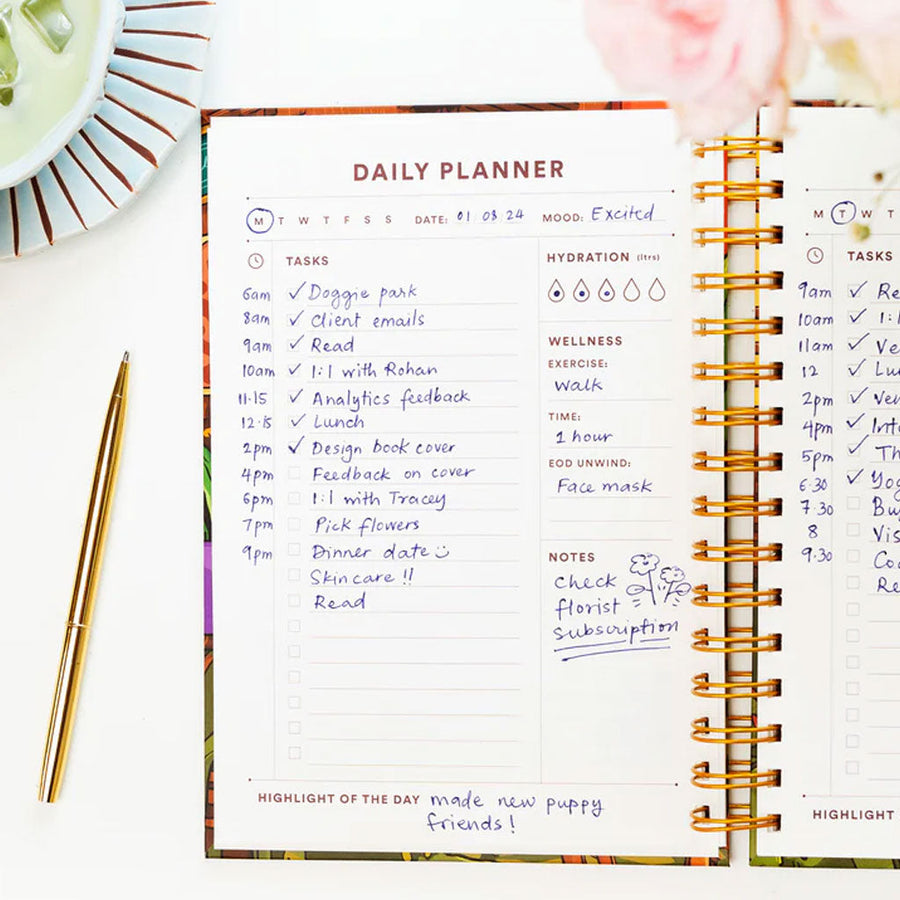 DAILY PLANNER
M T W T F S S DATE: 01 08 24 MOOD: Excited
TASKS
6am ✓ Doggie park
8am ✓ Client emails
9am ✓ Read
10am ✓ 1:1 with Rohan
11.15 ✓ Analytics feedback
12.15 ✓ Lunch
2pm ✓ Design book cover
4pm Feedback on cover
6pm 1:1 with Tracey
7pm Pick flowers
9pm Dinner date
Skincare !!
Read
HYDRATION (ltrs)
WELLNESS
EXERCISE:
walk
TIME:
1 hour
EOD UNWIND:
Face mask
NOTES
check
florist
subscription
HIGHLIGHT OF THE DAY made new puppy
friends!
M T W T
TASKS
9am ✓
10am ✓ 1:1
11am ✓
12 ✓
2pm ✓
4pm ✓
5pm ✓
6.30 ✓
7.30
8
9.30
HIGHLIGHT